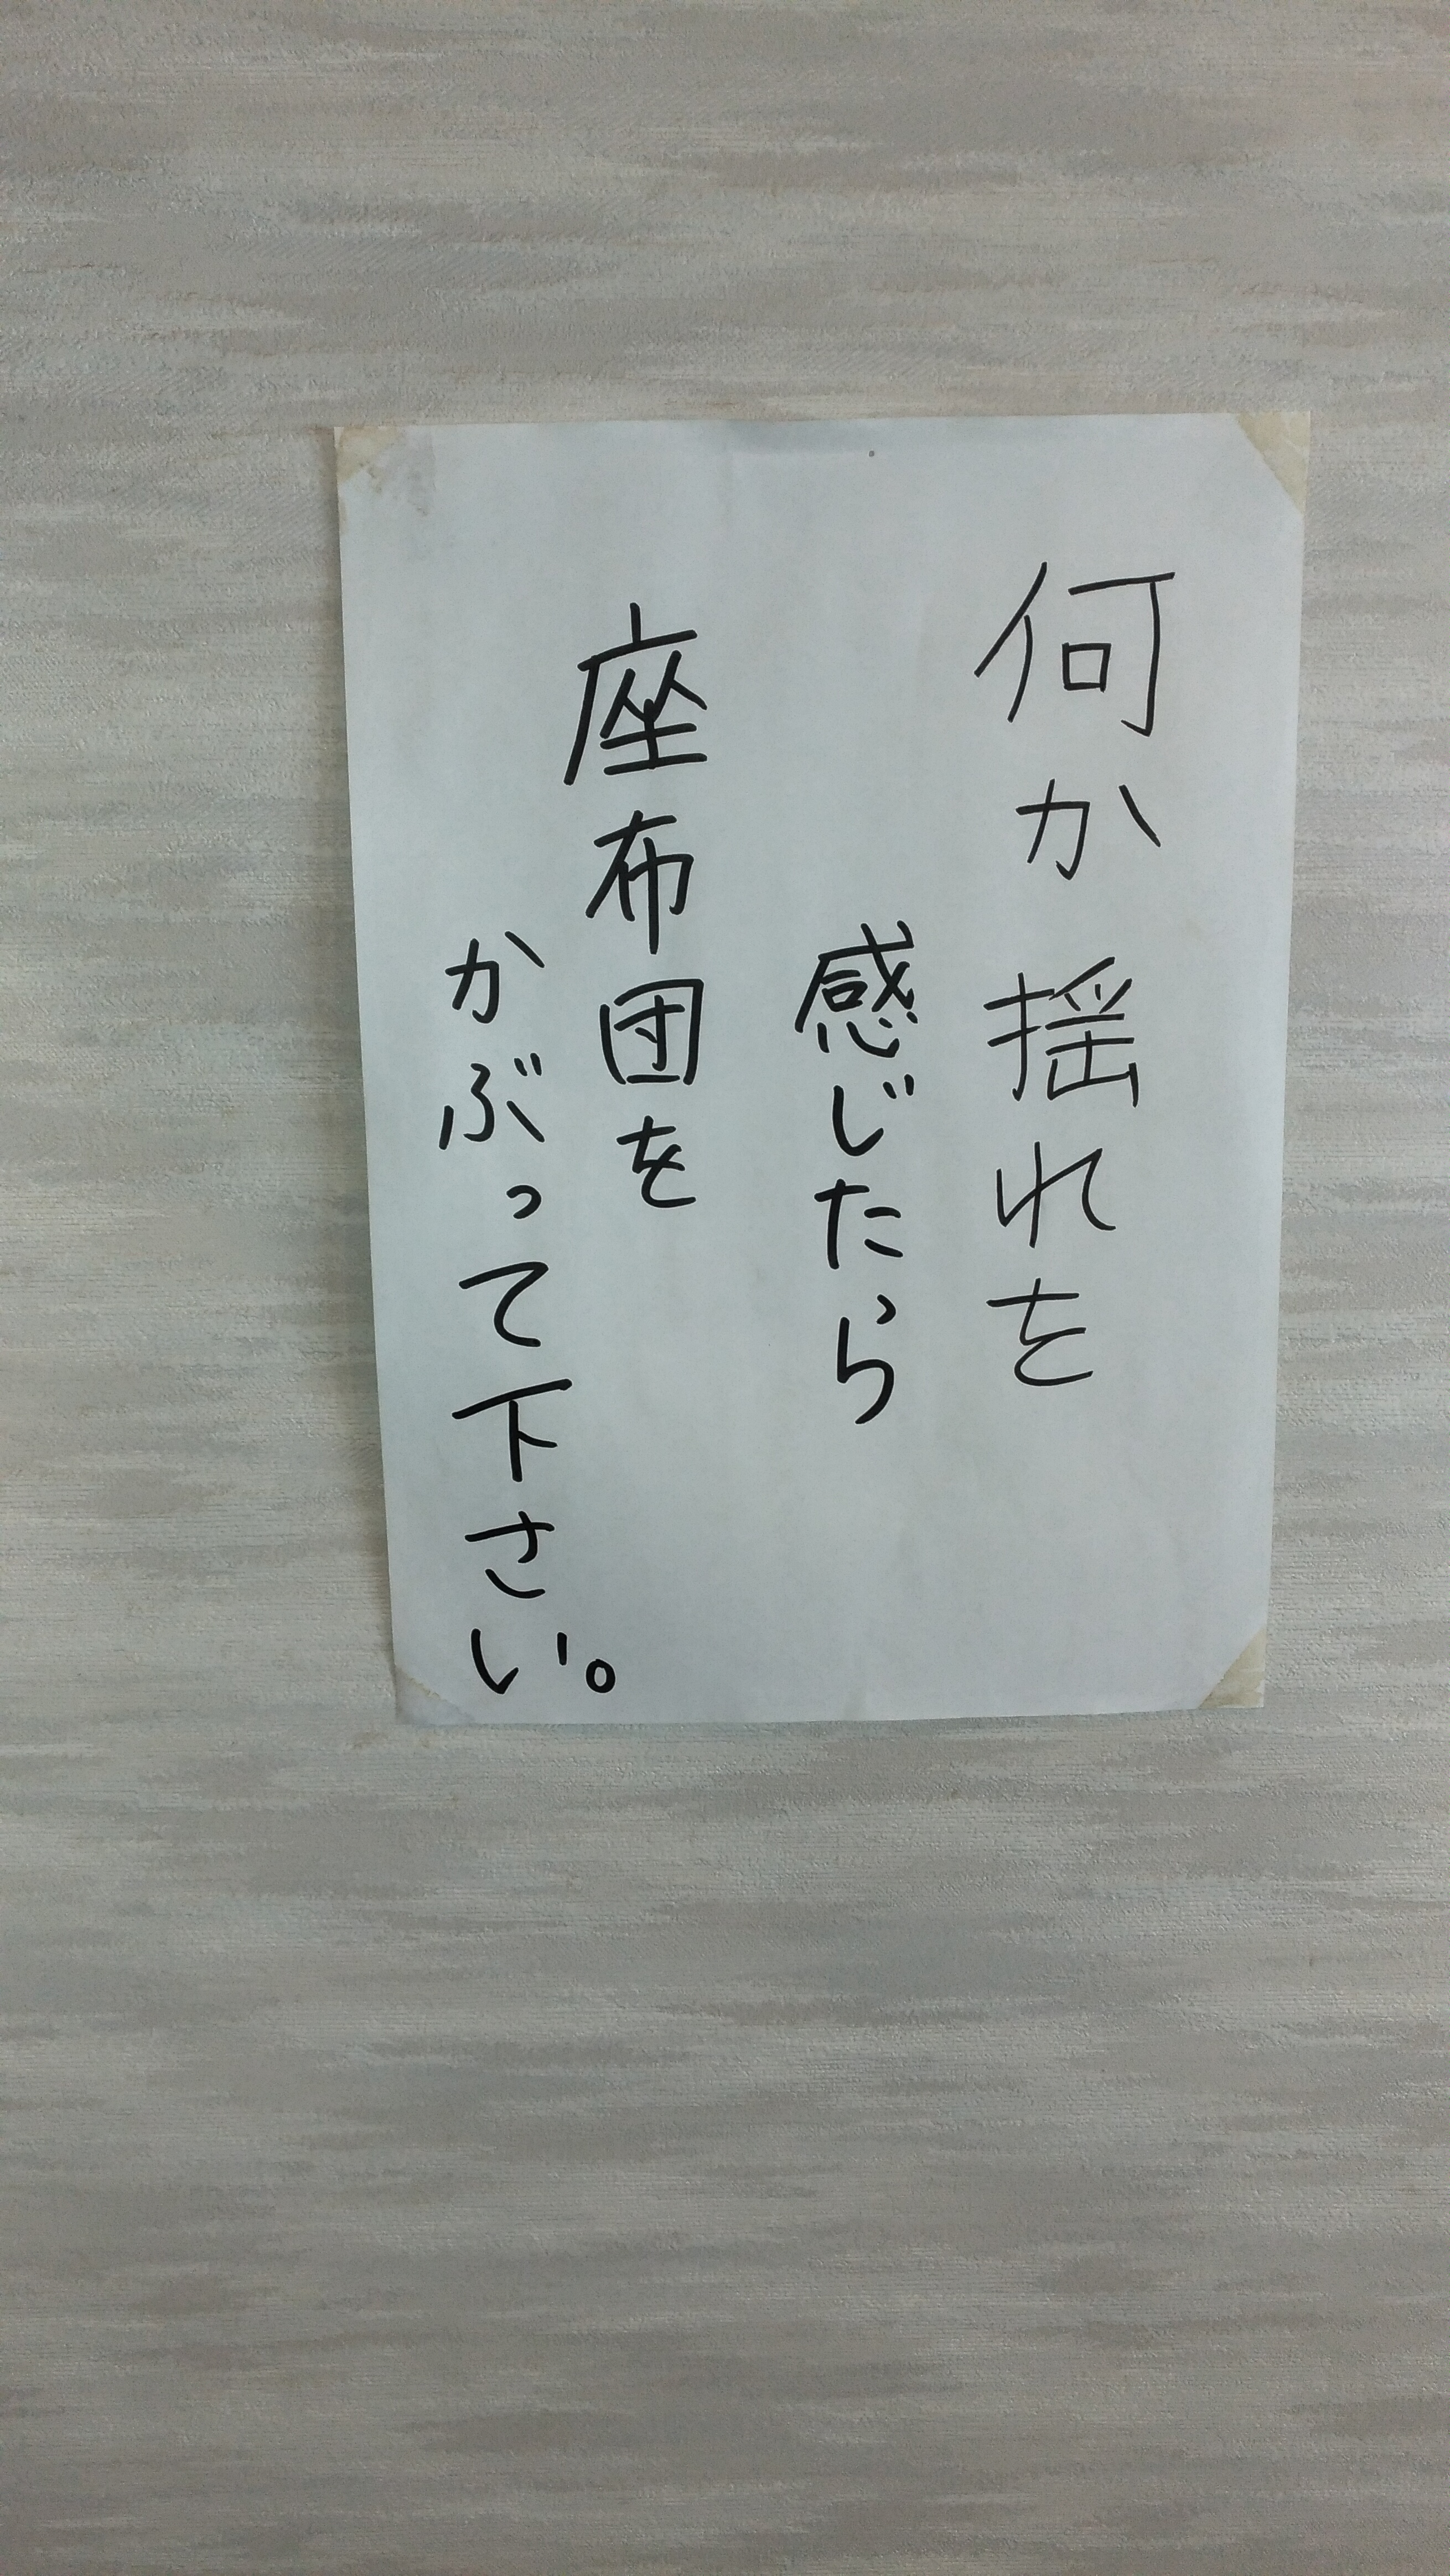 何か揺れを
感じたら
座布団を
かぶって下さい。